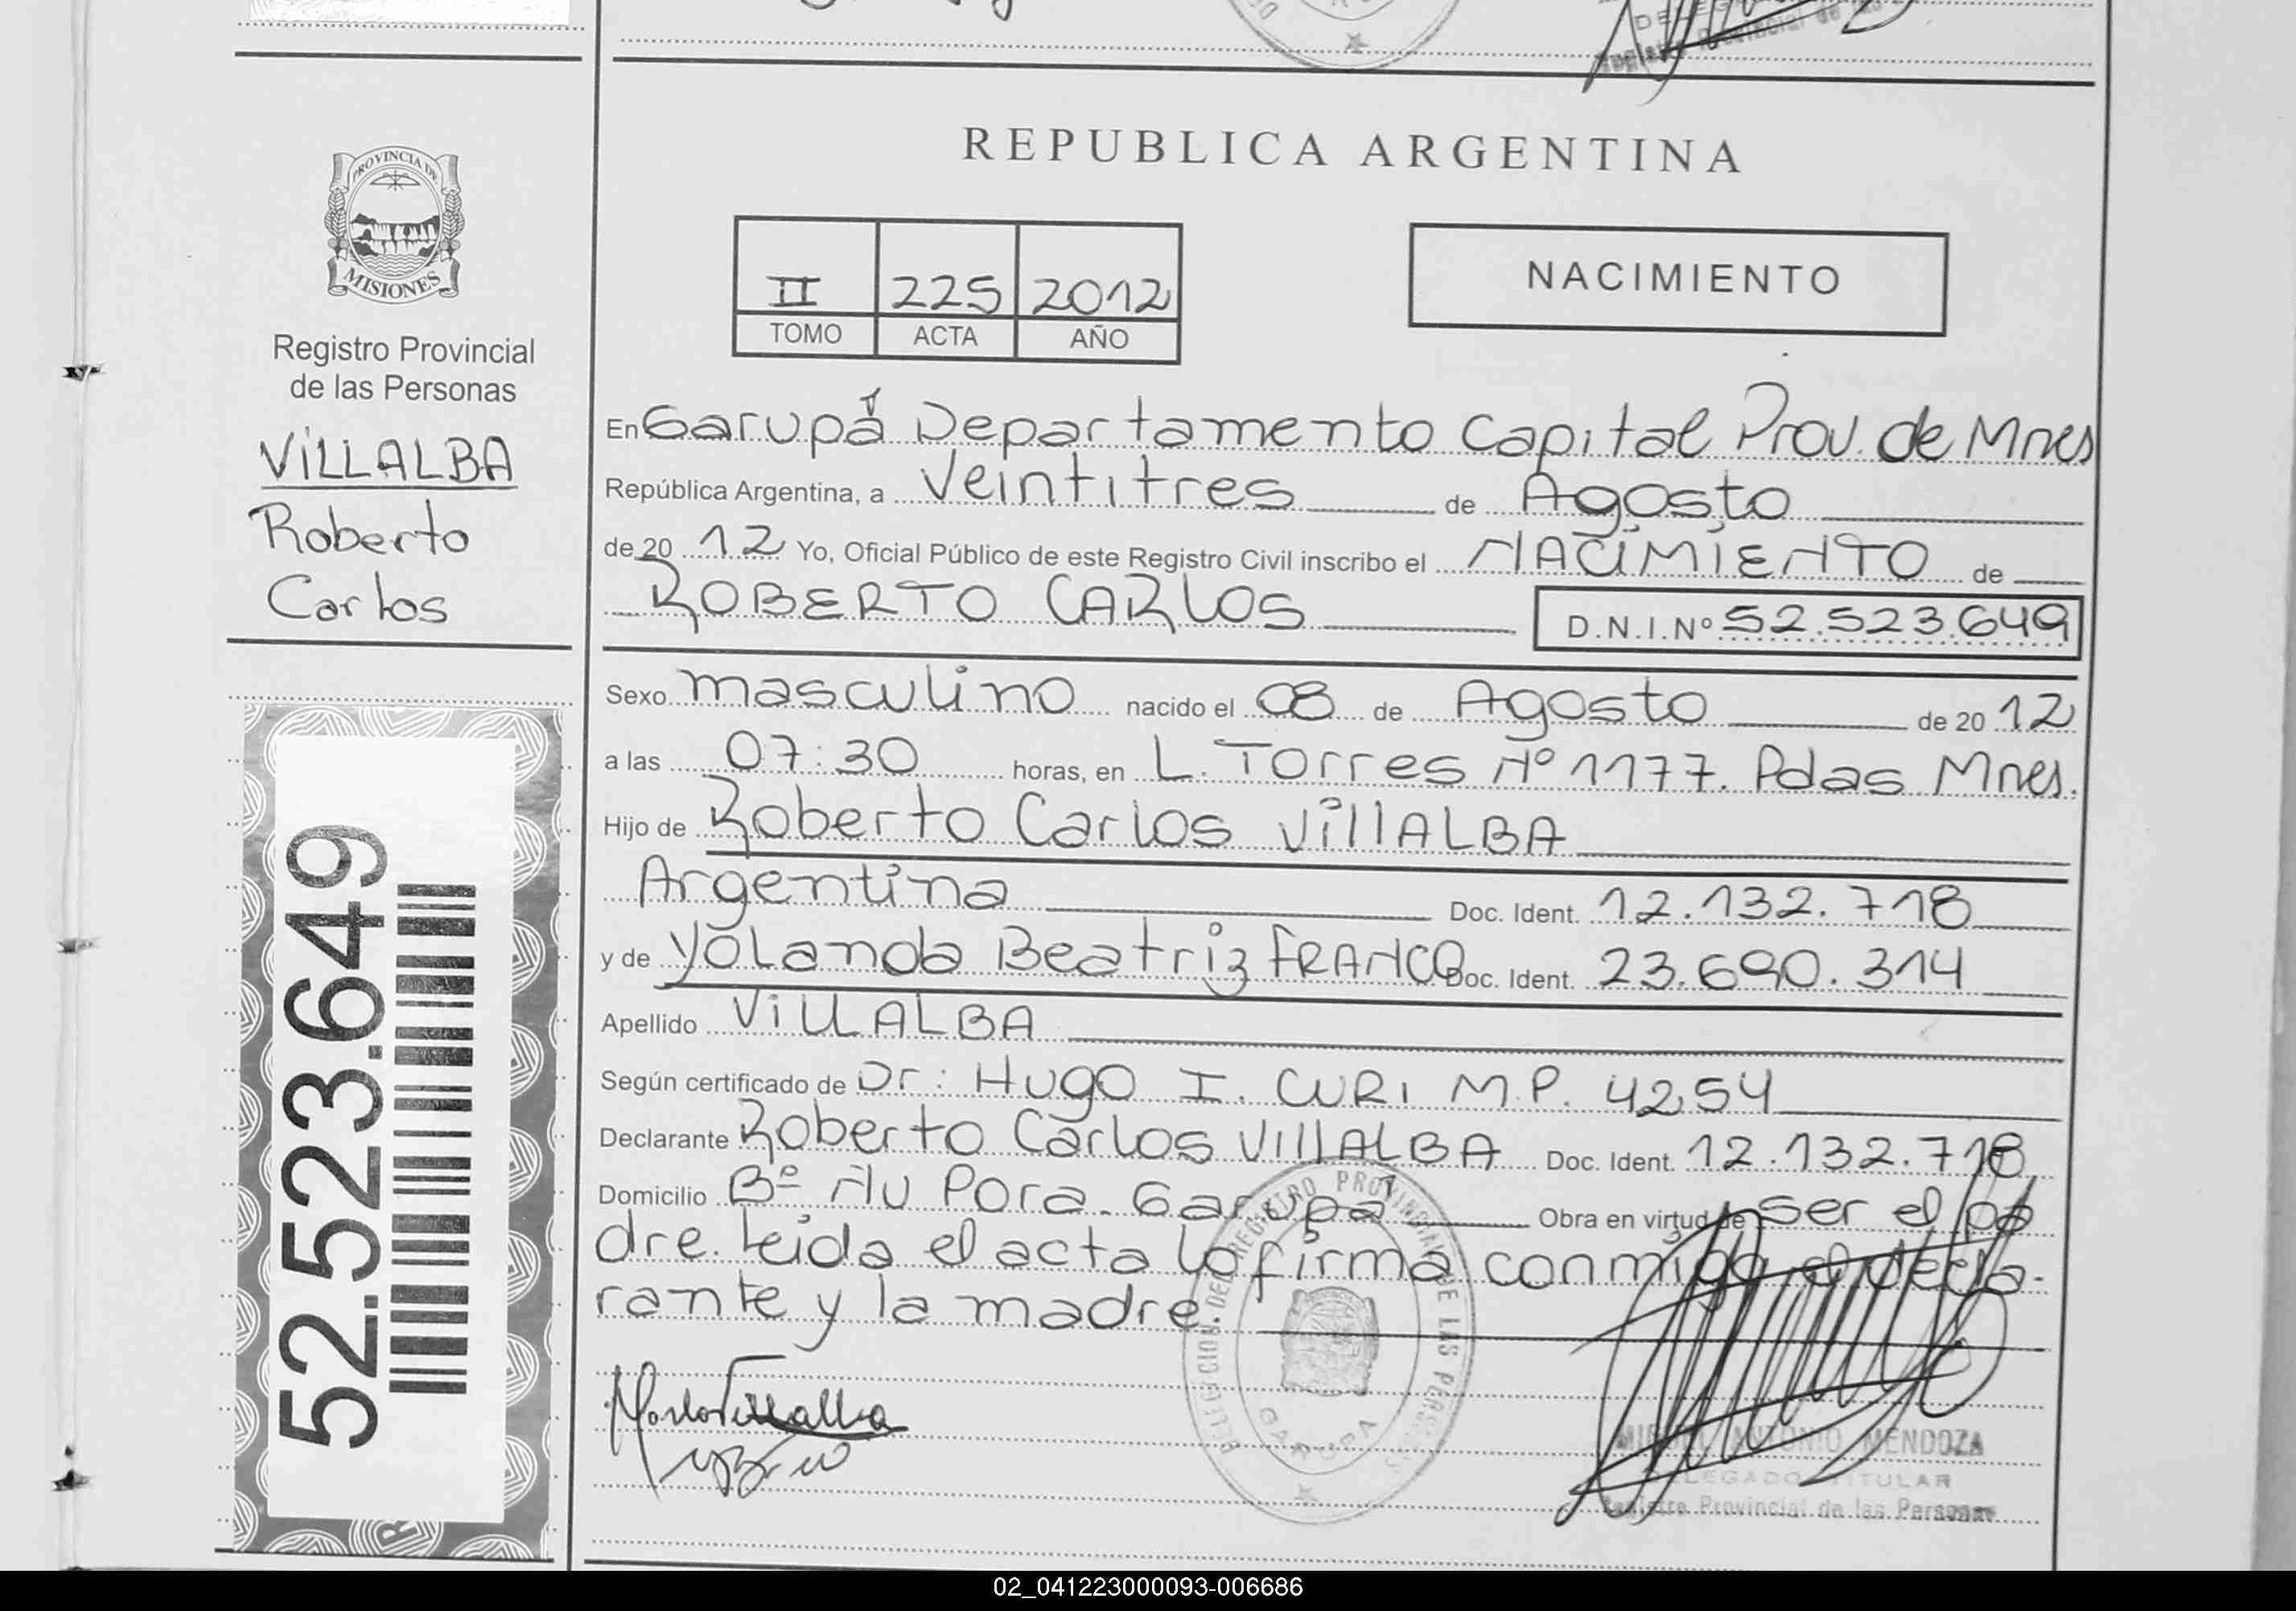 REPUBLICA ARGENTINA
PROVINCIA DE
MISIONES
Registro Provincial
de las Personas
VILLALBA
Roberto
Carlos
52.523.649
II 225 2012
TOMO ACTA AÑO
NACIMIENTO
En Garupá Departamento Capital Prov. de Mnes
República Argentina, a Veintitres de Agosto
de 20 12 Yo, Oficial Público de este Registro Civil inscribo el NACIMIENTO de
ROBERTO CARLOS D.N.I. Nº 52.523.649
Sexo masculino nacido el 08 de Agosto de 20 12
a las 07:30 horas, en L. Torres Nº 1177. Pdas Mnes.
Hijo de Roberto Carlos VillALBA
Argentina Doc. Ident. 12.132.718
y de Yolanda Beatriz FRANCO Doc. Ident. 23.690.314
Apellido VillALBA
Según certificado de Dr: Hugo I. CURI M.P. 4254
Declarante Roberto Carlos VillALBA Doc. Ident. 12.132.718
Domicilio Bº Ñu Pora. Garupá Obra en virtud de ser el pa
dre. leida el acta la firma conmigo el decla-
rante y la madre.
REGISTRO PROVINCIAL DE LAS
GARUPA
MIGUEL ANTONIO MENDOZA
DELEGADO TITULAR
Registro Provincial de las Personas
02_041223000093-006686